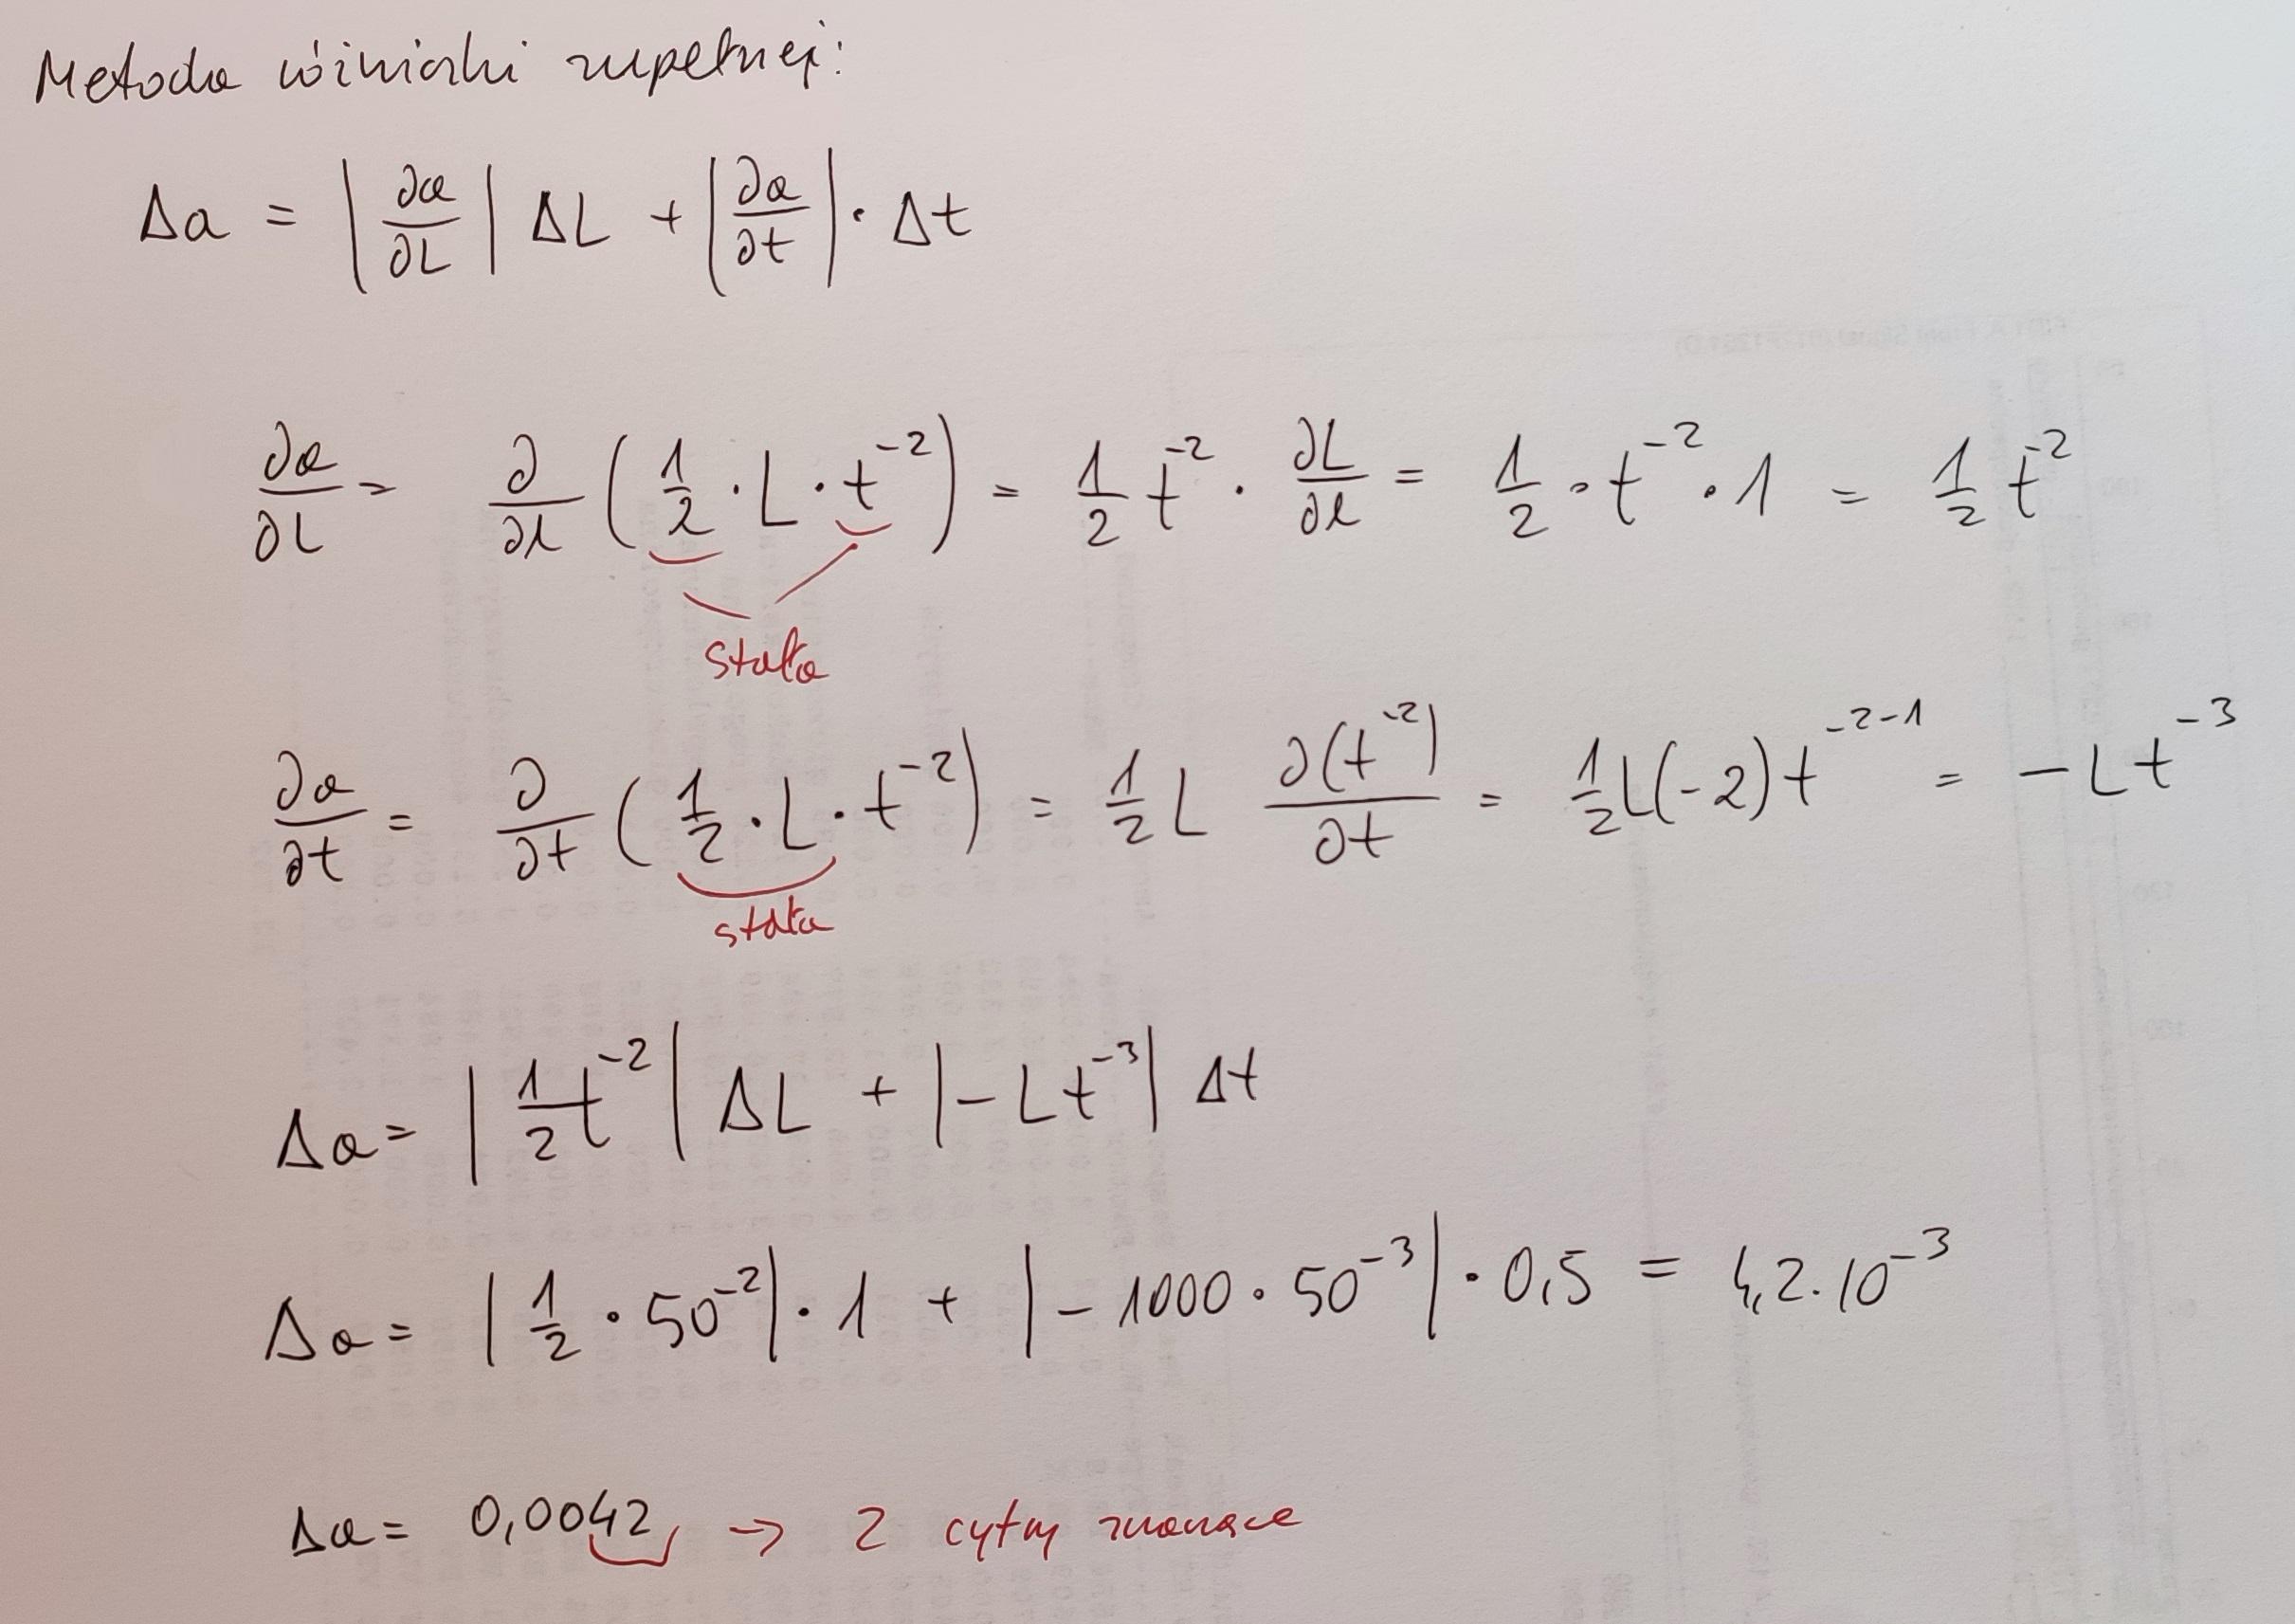 Metoda różniczki zupełnej:
Δa = |∂a/∂L| ΔL + |∂a/∂t| · Δt
∂a/∂L = ∂/∂L (1/2 · L · t⁻²) = 1/2 t⁻² · ∂L/∂L = 1/2 · t⁻² · 1 = 1/2 t⁻²
stała
∂a/∂t = ∂/∂t (1/2 · L · t⁻²) = 1/2 L ∂(t⁻²)/∂t = 1/2 L(-2) t⁻²⁻¹ = - L t⁻³
stała
Δa = |1/2 t⁻²| ΔL + |- L t⁻³| Δt
Δa = |1/2 · 50⁻²| · 1 + |- 1000 · 50⁻³| · 0,5 = 4,2 · 10⁻³
Δa = 0,0042 → 2 cyfry znaczące